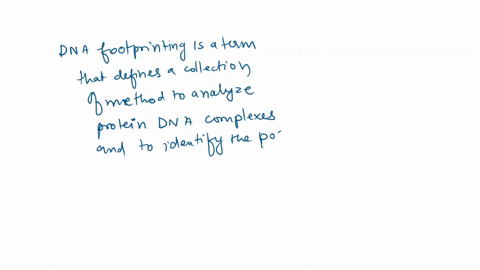 DNA footprinting is a term
that defines a collection
of method to analyze
protein DNA complexes
and to identify the po